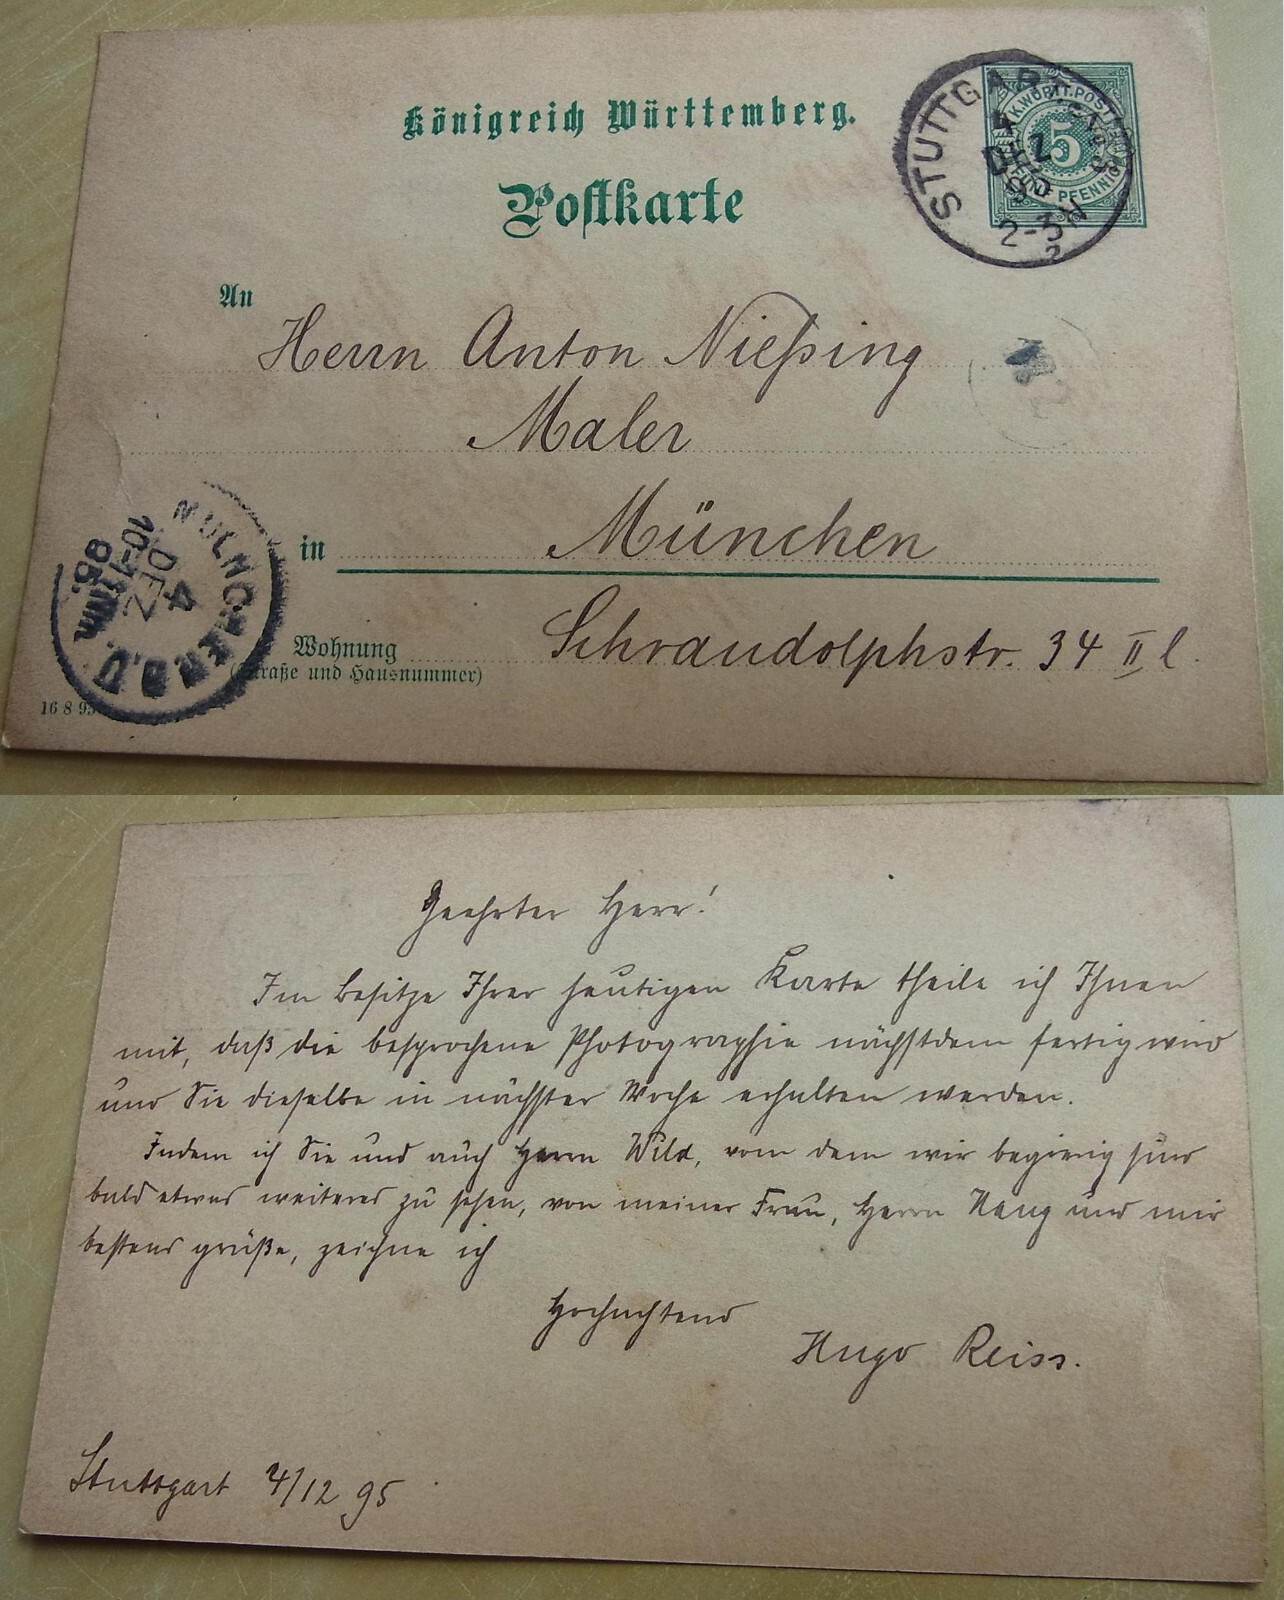 Königreich Württemberg.
Postkarte
K.WÜRTT.POST
5
FÜNF PFENNIG
STUTTGART
4 DEZ
95
2-3N
2
An
Herrn Anton Nießing
Maler
in München
Wohnung Schraudolphstr. 34 II l.
(Straße und Hausnummer)
MÜNCHEN B.D.
4
DEZ
10-11Nm.
95.
16 8 95
Geehrter Herr!
Im Besitze Ihrer heutigen Karte theile ich Ihnen
mit, daß die besprochene Photographie nächstdem fertig wird
und Sie dieselbe in nächster Woche erhalten werden.
Indem ich Sie und auch Herrn Wild, vom dem wir begierig sind
bald etwas weiteres zu sehen, von meiner Frau, Herrn Haug und mir
bestens grüße, zeichne ich
Hochachtend
Hugo Reiss.
Stuttgart 4/12 95